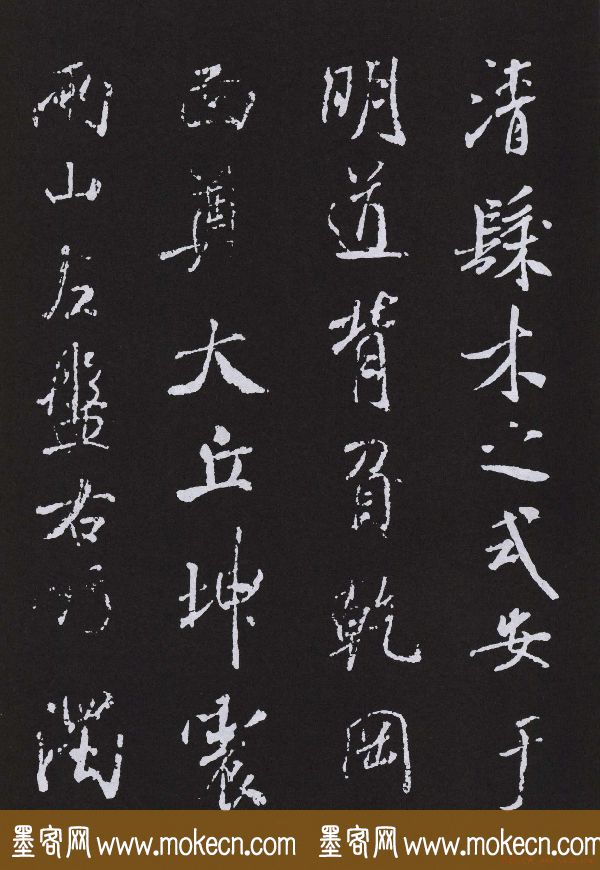 清縣木之式安于
明道背負乾岡
面奠大丘坤震
兩山左盤右
墨客网 www.mokecn.com 墨客网 www.mokecn.com